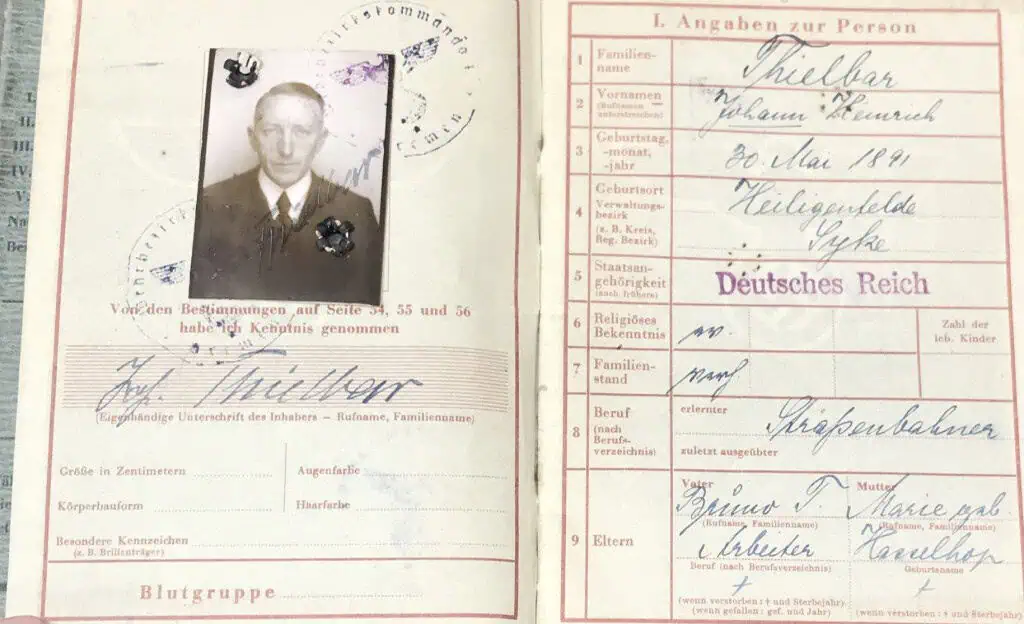 Bremen
Von den Bestimmungen auf Seite 54, 55 und 56
habe ich Kenntnis genommen
Thielbar
(Eigenhändige Unterschrift des Inhabers – Rufname, Familienname)
Größe in Zentimetern
Augenfarbe
Körperbauform
Haarfarbe
Besondere Kennzeichen
(z. B. Brillenträger)
Blutgruppe
I. Angaben zur Person
1 Familien-
name
Thielbar
2 Vornamen
(Rufnamen
unterstreichen)
Johann Heinrich
3 Geburtstag,
-monat,
-jahr
30. Mai 1891
4 Geburtsort
Verwaltungs-
bezirk
(z. B. Kreis,
Reg. Bezirk)
Heiligenfelde
Syke
5 Staatsan-
gehörigkeit
(auch frühere)
Deutsches Reich
6 Religiöses
Bekenntnis
ev.
Zahl der
leb. Kinder
7 Familien-
stand
verh.
8 Beruf
(nach
Berufs-
verzeichnis)
erlernter
Straßenbahner
zuletzt ausgeübter
9 Eltern
Vater
Bruno T.
(Rufname, Familienname)
Arbeiter
Beruf (nach Berufsverzeichnis)
†
(wenn verstorben: † und Sterbejahr)
(wenn gefallen: gef. und Jahr)
Mutter
Marie geb.
(Rufname, Familienname)
Hasselhop
Geburtsname
†
(wenn verstorben: † und Sterbejahr)